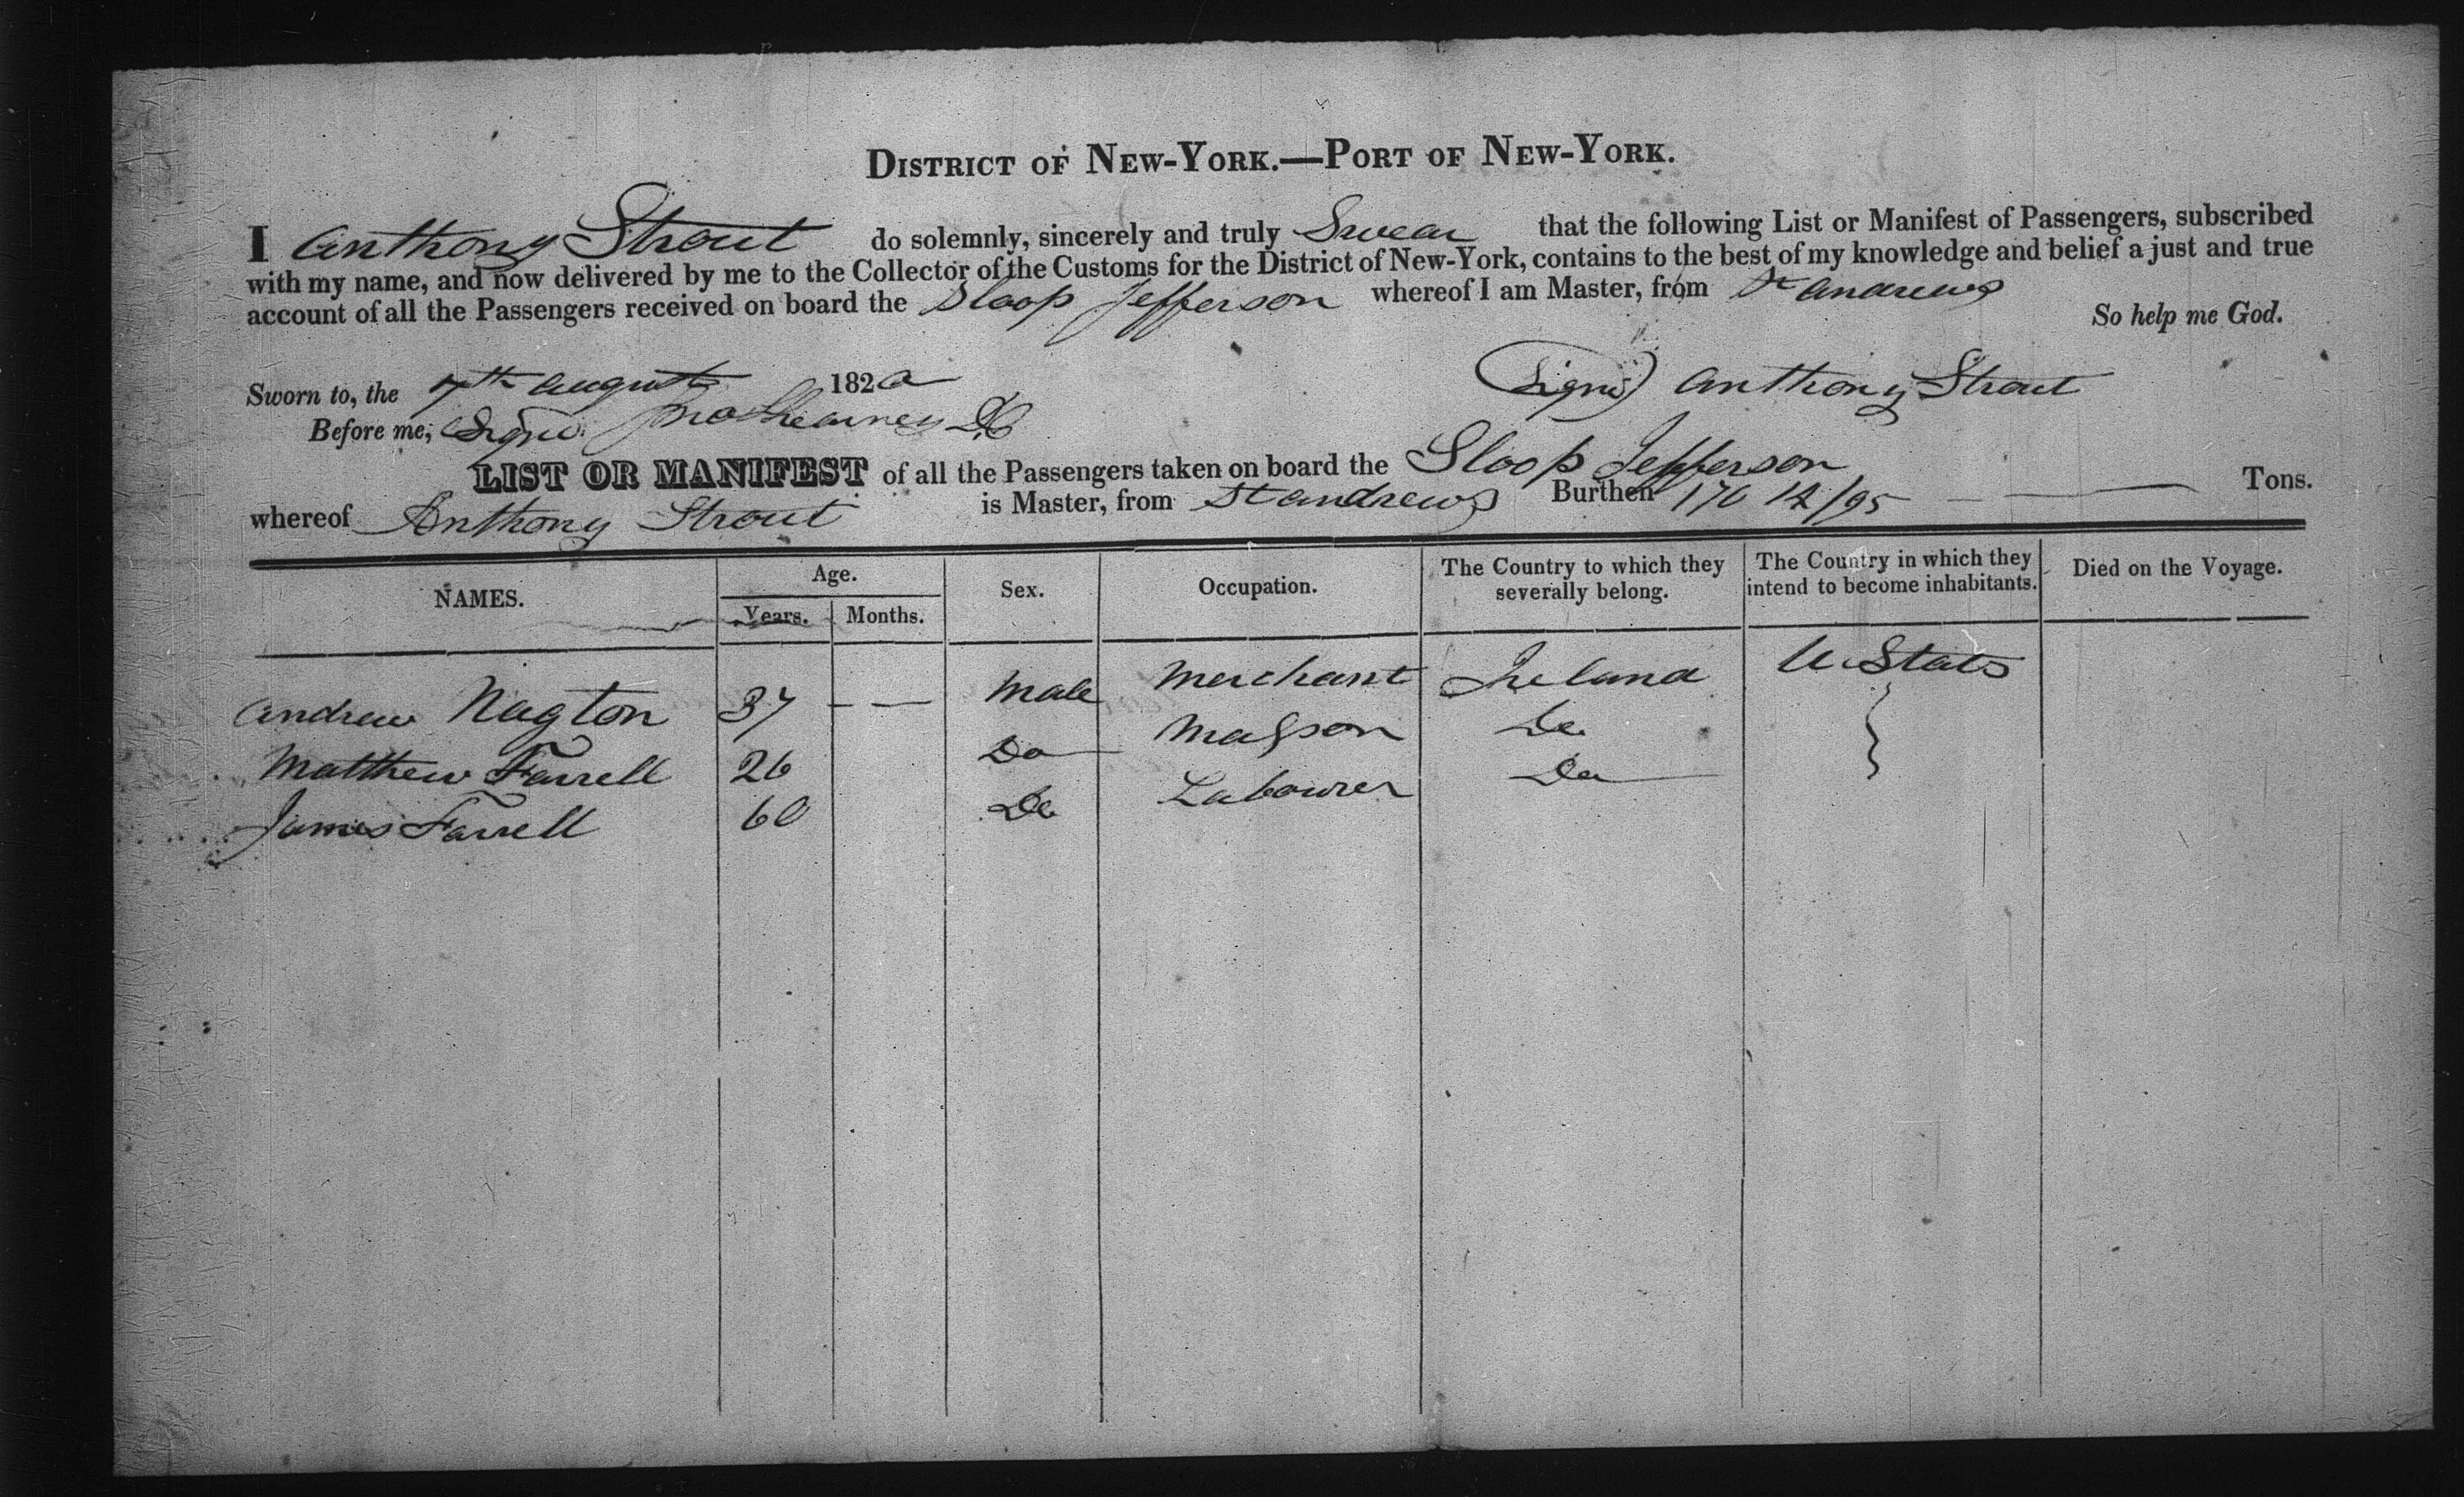 DISTRICT OF NEW-YORK.—PORT OF NEW-YORK.
I Anthony Strout do solemnly, sincerely and truly Swear that the following List or Manifest of Passengers, subscribed
with my name, and now delivered by me to the Collector of the Customs for the District of New-York, contains to the best of my knowledge and belief a just and true
account of all the Passengers received on board the Sloop Jefferson whereof I am Master, from St Andrews
So help me God.
Sworn to, the 7th August 1820
(Signd) Anthony Strout
Before me, Signd
LIST OR MANIFEST of all the Passengers taken on board the Sloop Jefferson
whereof Anthony Strout is Master, from St Andrews Burthen 170 14/95 Tons.
NAMES. Age. Years. Months. Sex. Occupation. The Country to which they severally belong. The Country in which they intend to become inhabitants. Died on the Voyage.
Andrew Nagton 37 — — Male Merchant Ireland U. States
Matthew Farrell 26 Do Masson Do
James Farrell 60 Do Labourer Do